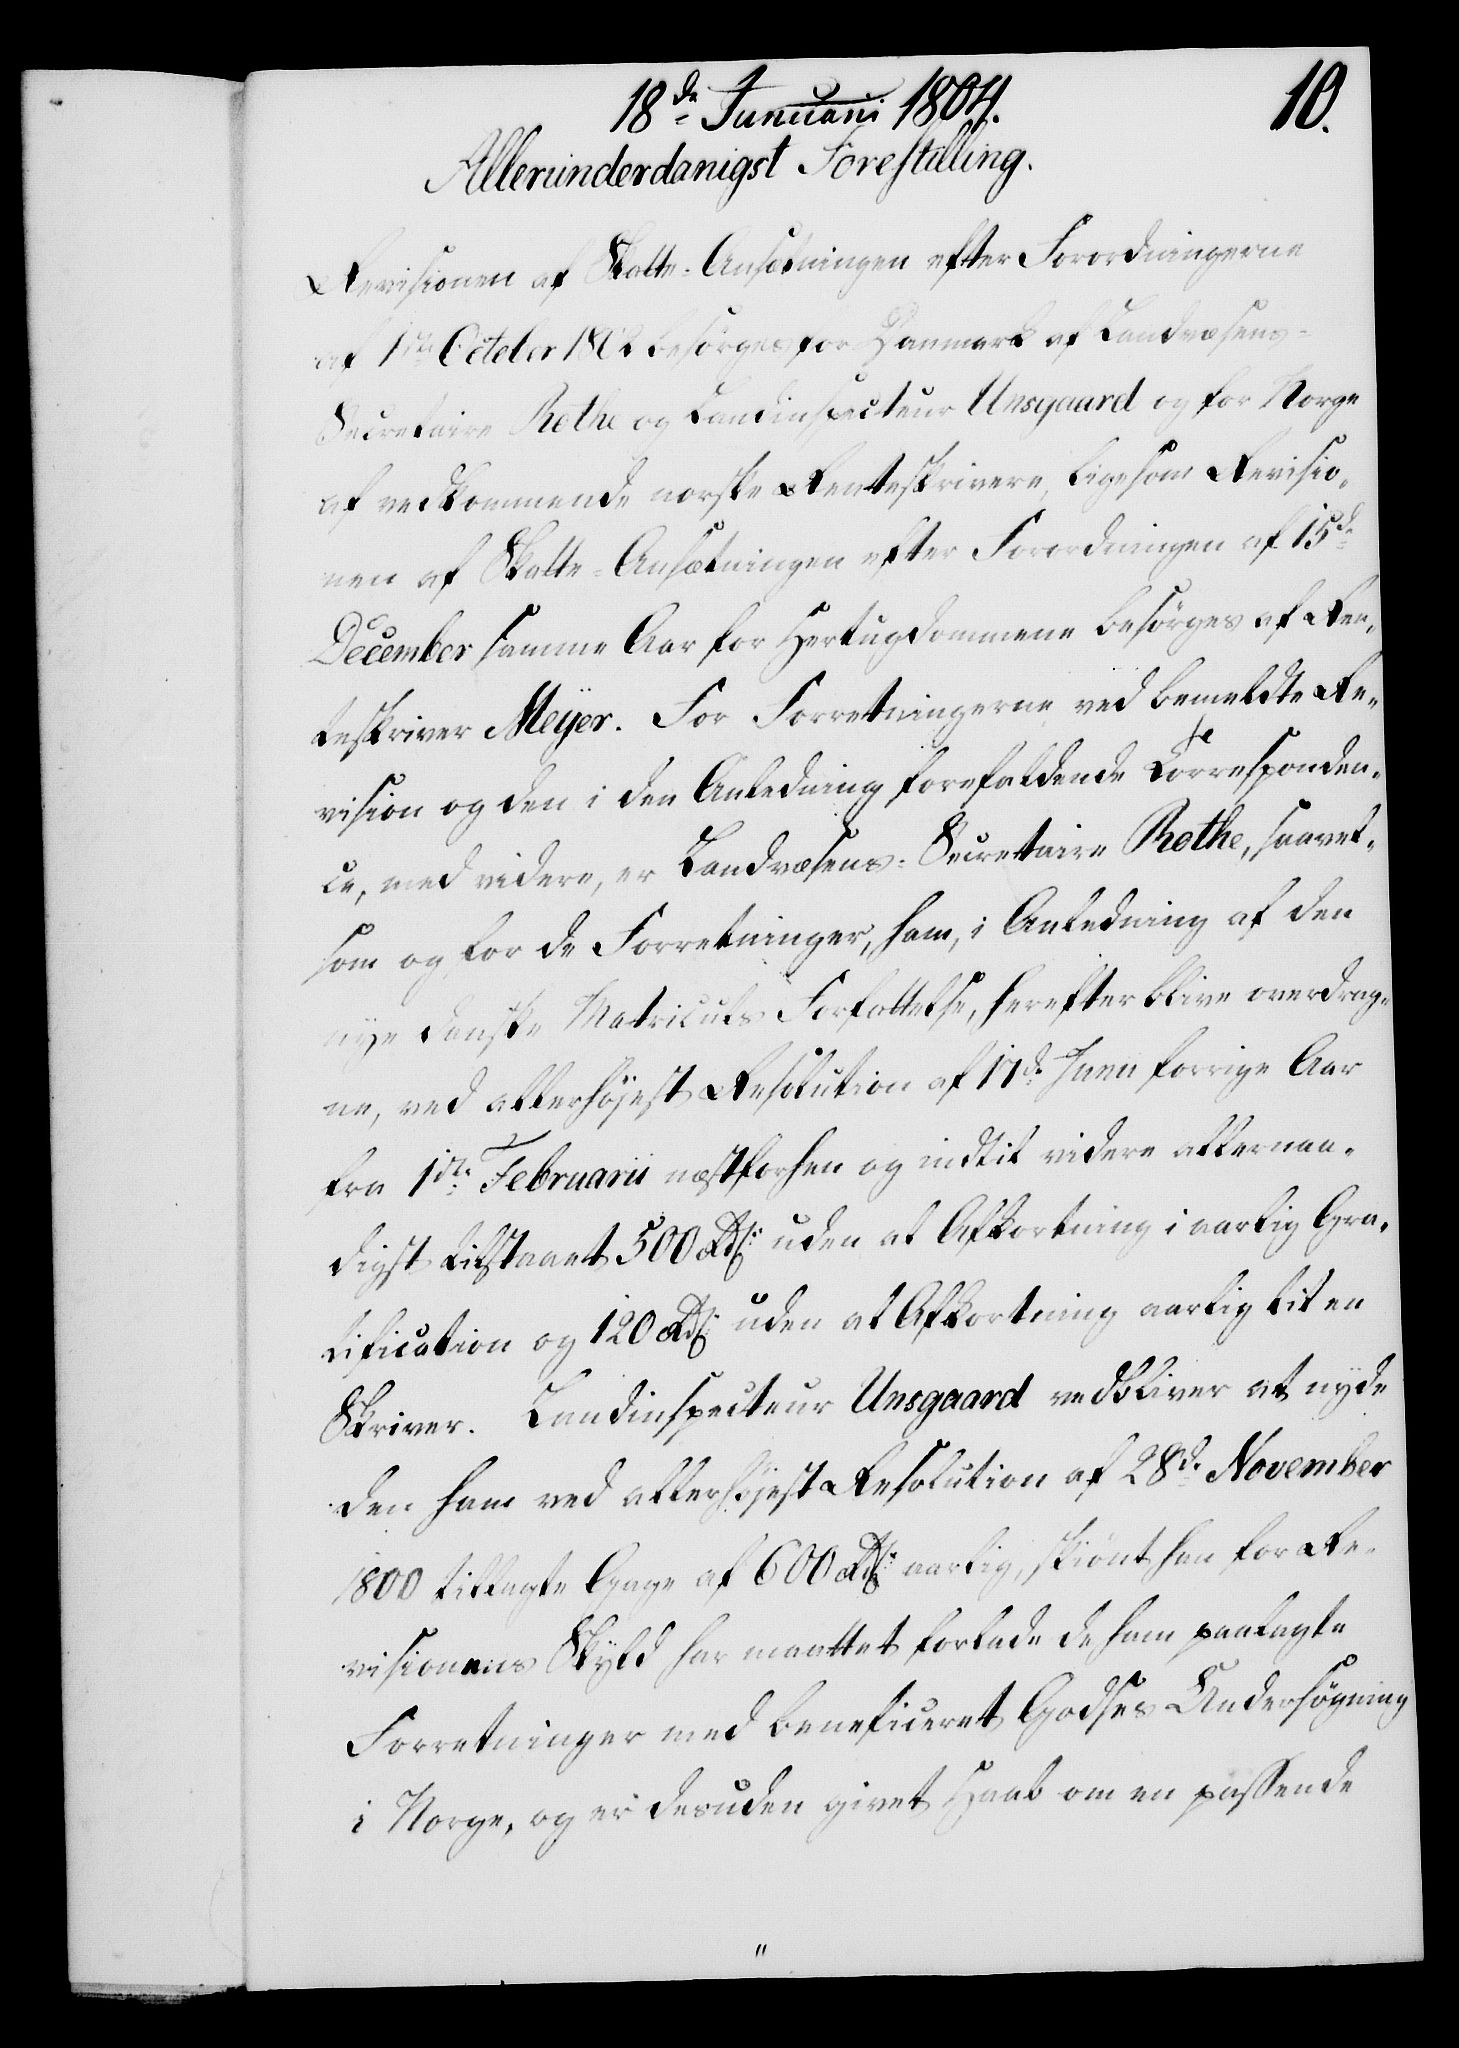 18de Januarii 1804.
10.
Allerunderdanigst Forestilling.
Revisionen af Skatte-Ansætningen efter Forordningerne
af 1ste October 1802 besörges for Danmark af Landvæsens-
Secretaire Rothe og Landinspecteur Unsgaard og for Norge
af vedkommende norske Renteskrivere, ligesom Revisio-
nen af Skatte-Ansætningen efter Forordningen af 15de
December samme Aar for Hertugdommene besörges af Ren-
teskriver Meÿer. For Forretningerne ved bemeldte Re-
vision og den i den Anledning forefaldende Corresponden-
ce, med videre, er Landvæsens-Secretaire Rothe, saavel-
som og for de Forretninger, ham, i Anledning af den
nye danske Matriculs Forfattelse, herefter blive overdrag-
ne, ved allerhöjest Resolution af 17de Junii forrige Aar
fra 1ste Februarii næstforhen og indtil videre allernaa-
digst tilstaaet 500 Rd: uden al Afkortning i aarlig Gra-
tification og 120 Rd: uden al Afkortning aarlig til en
Skriver. Landinspecteur Unsgaard vedbliver at nyde
den ham ved allerhöjest Resolution af 28de November
1800 tillagte Gage af 600 Rd: aarlig, skiönt han for Re-
visionens Skyld har maattet forlade de ham paalagte
Forretninger med beneficeret Godses Undersögning
i Norge, og er desuden givet Haab om en passende
"